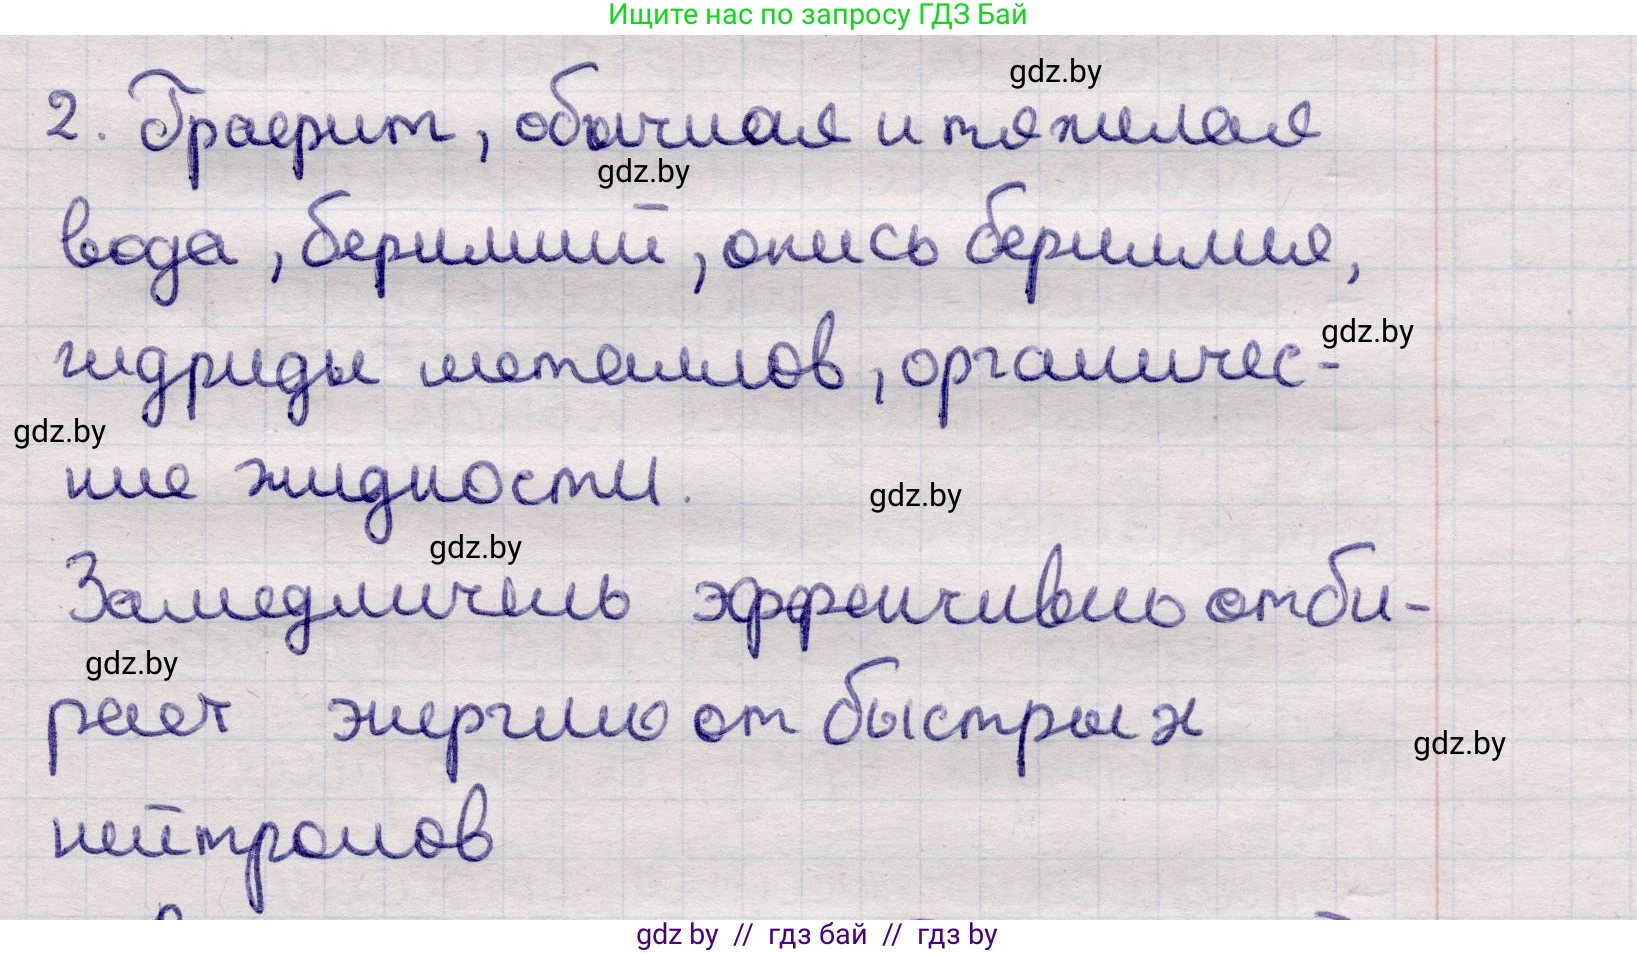 Ищите нас по запросу ГДЗ Бай
gdz.by
2. Графит, обычная и тяжелая
gdz.by
вода, бериллий, окись бериллия,
gdz.by
гидриды металлов, органичес-
gdz.by
кие жидкости.
gdz.by
gdz.by
Замедлитель эффективно отби-
gdz.by
рает энергию от быстрых
gdz.by
нейтронов
gdz by // гдз бай // гдз by